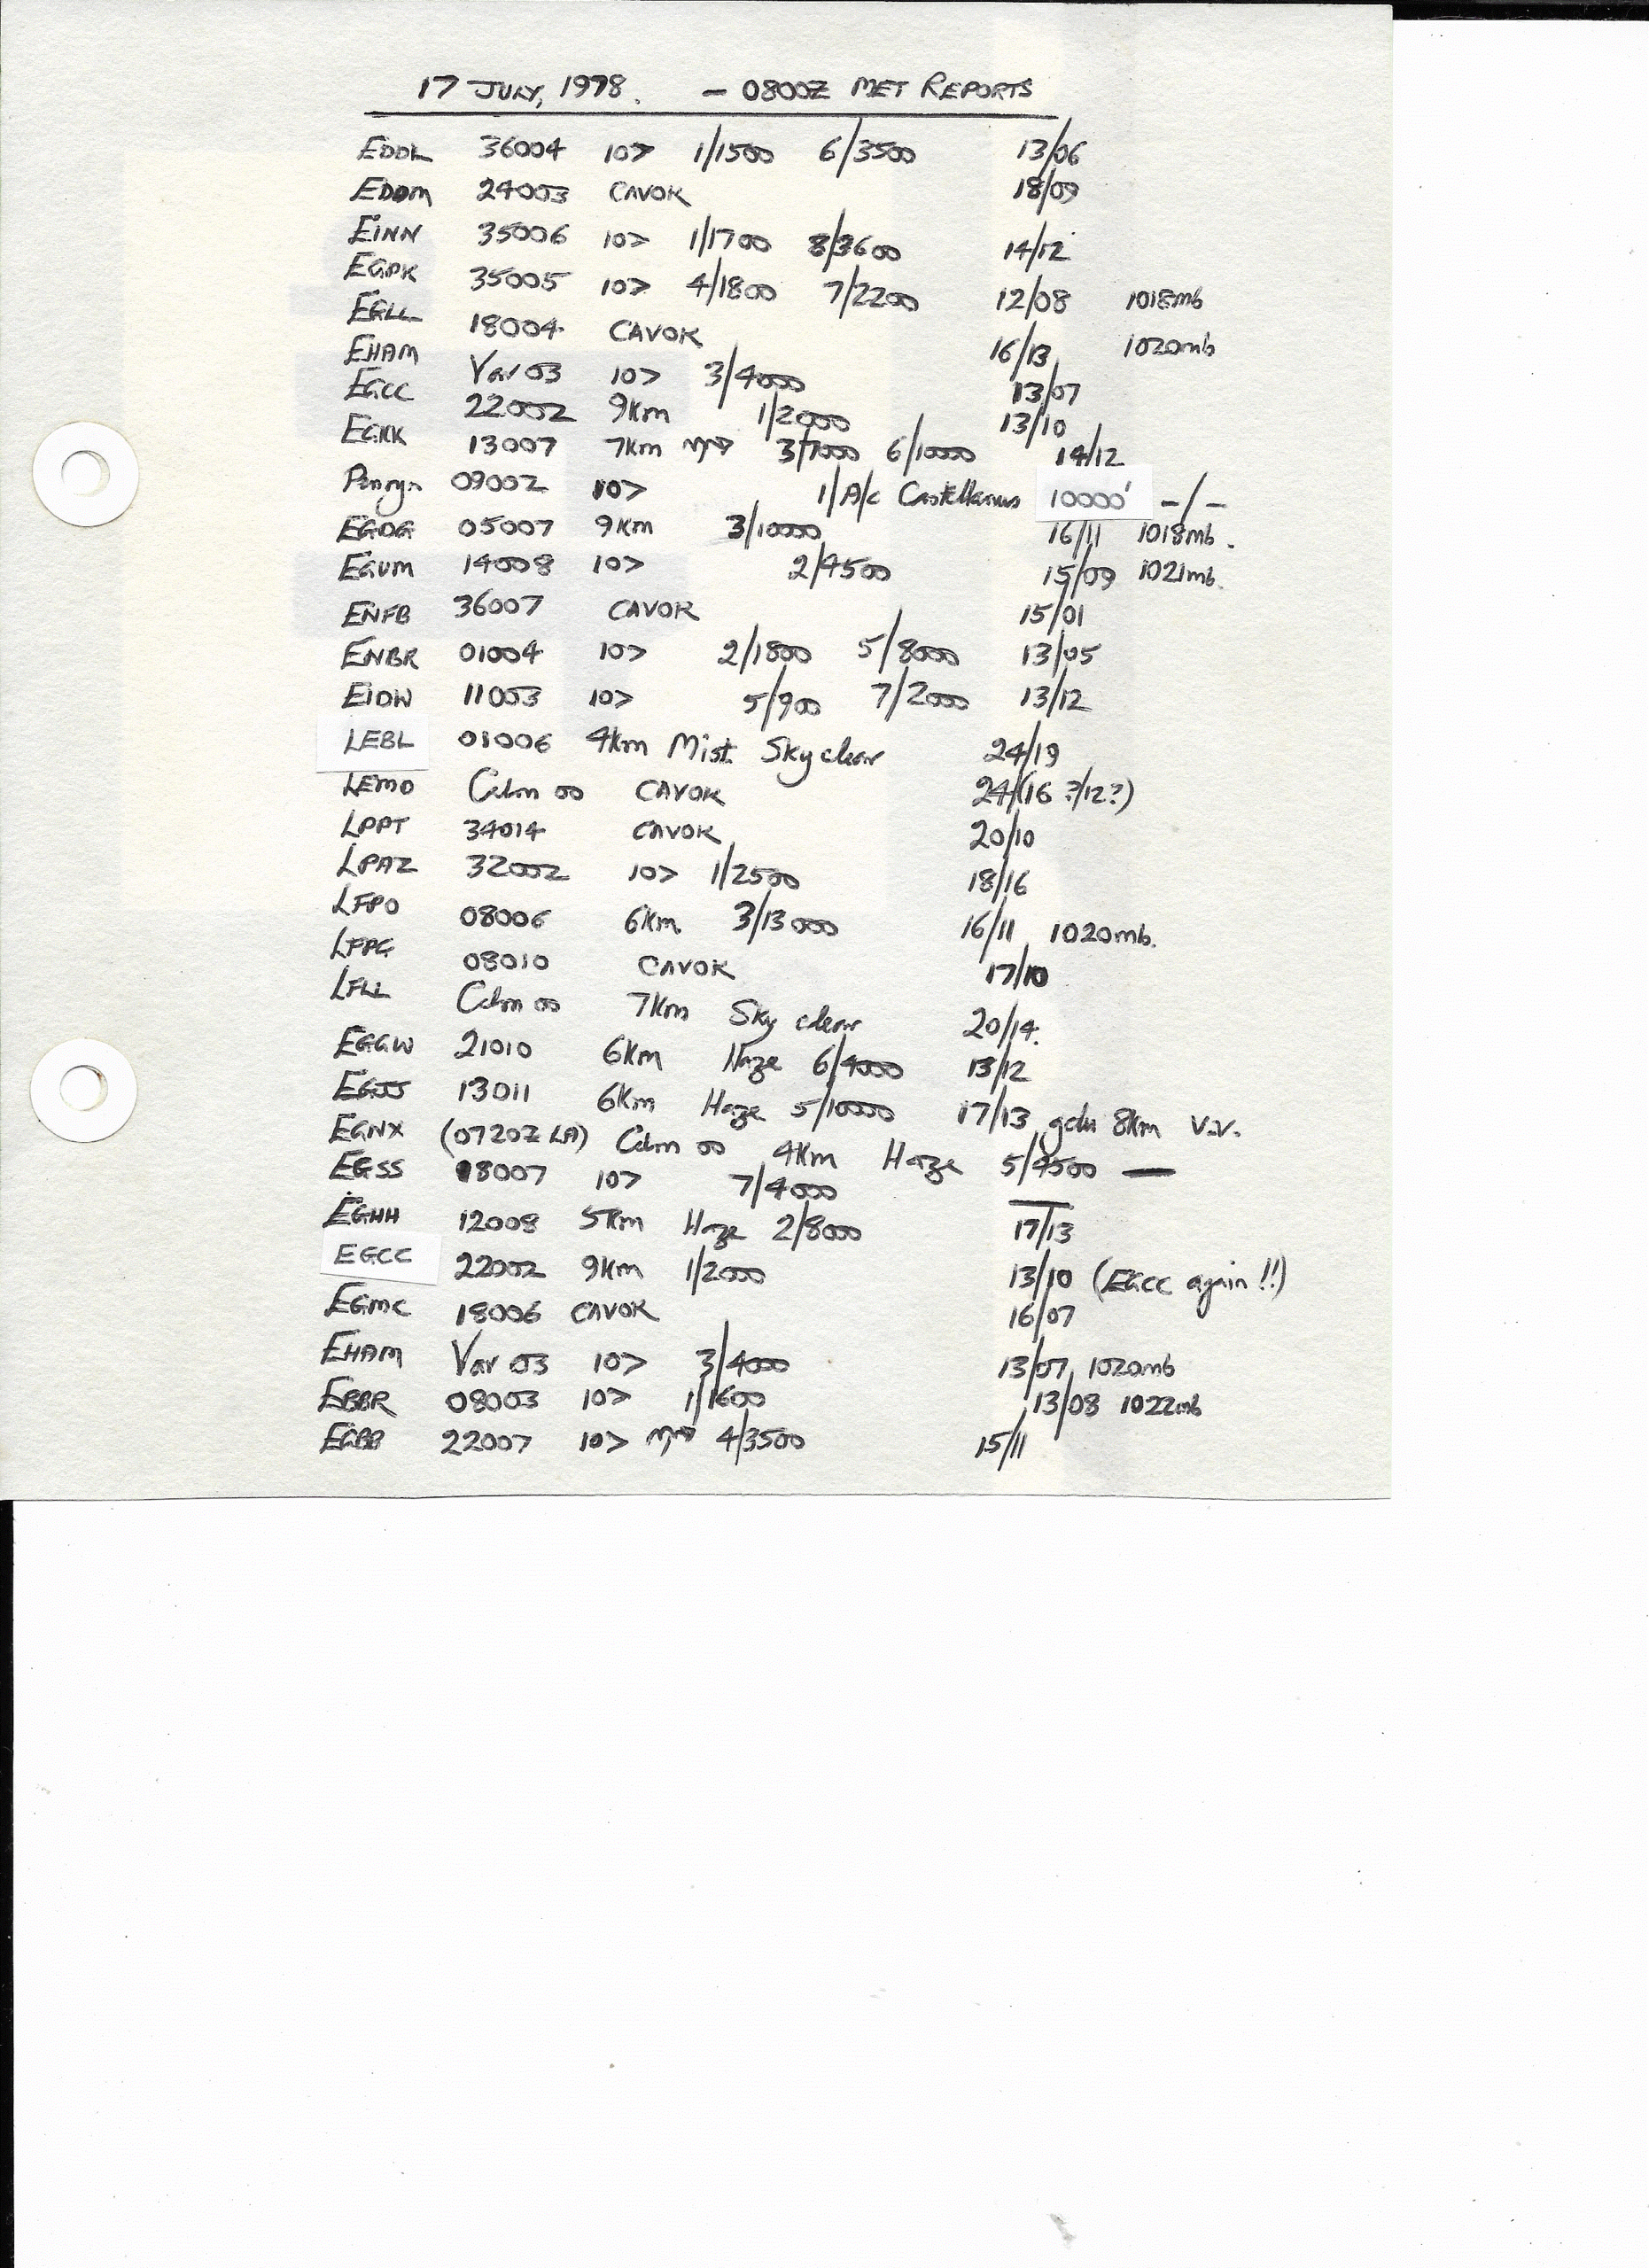 17 JULY, 1978. — 0800Z MET REPORTS
EDDL 36004 10> 1/1500 6/3500 13/06
EDDM 24003 CAVOK 18/09
EINN 35006 10> 1/1700 8/3600 14/12
EGPK 35005 10> 4/1800 7/2200 12/08 1018mb
EGLL 18004 CAVOK 16/13 1020mb
EHAM Var 03 10> 3/4000 13/07
EGCC 22002 9Km 1/2000 13/10
EGKK 13007 7Km 3/1000 6/10000 14/12
Penryn 09002 10> 1/A/c Castellanus 10000' -/-
EGDG 05007 9Km 3/10000 16/11 1018mb.
EGUM 14008 10> 2/4500 15/09 1021mb.
ENFB 36007 CAVOK 15/01
ENBR 01004 10> 2/1800 5/8000 13/05
EIDW 11003 10> 5/900 7/2000 13/12
LEBL 01006 4Km Mist. Sky clear 24/19
LEMD Calm 00 CAVOK 24/(16 ?/12?)
LPPT 34014 CAVOK 20/10
LPAZ 32002 10> 1/2500 18/16
LFPO 08006 6Km. 3/13000 16/11 1020mb.
LFPG 08010 CAVOK 17/10
LFLL Calm 00 7Km Sky clear 20/14.
EGGW 21010 6Km Haze 6/4000 13/12
EGJJ 13011 6Km Haze 5/10000 17/13 gdu 8Km V.V.
EGNX (0720Z LA) Calm 00 4Km Haze 5/4500 —
EGSS 18007 10> 7/4000 —
EGHH 12008 5Km Haze 2/8000 17/13
EGCC 22002 9Km 1/2000 13/10 (EGCC again !!)
EGMC 18006 CAVOK 16/07
EHAM Var 03 10> 3/4000 13/07 1020mb
EBBR 08003 10> 1/1600 13/08 1022mb
EGBB 22007 10> 4/3500 15/11